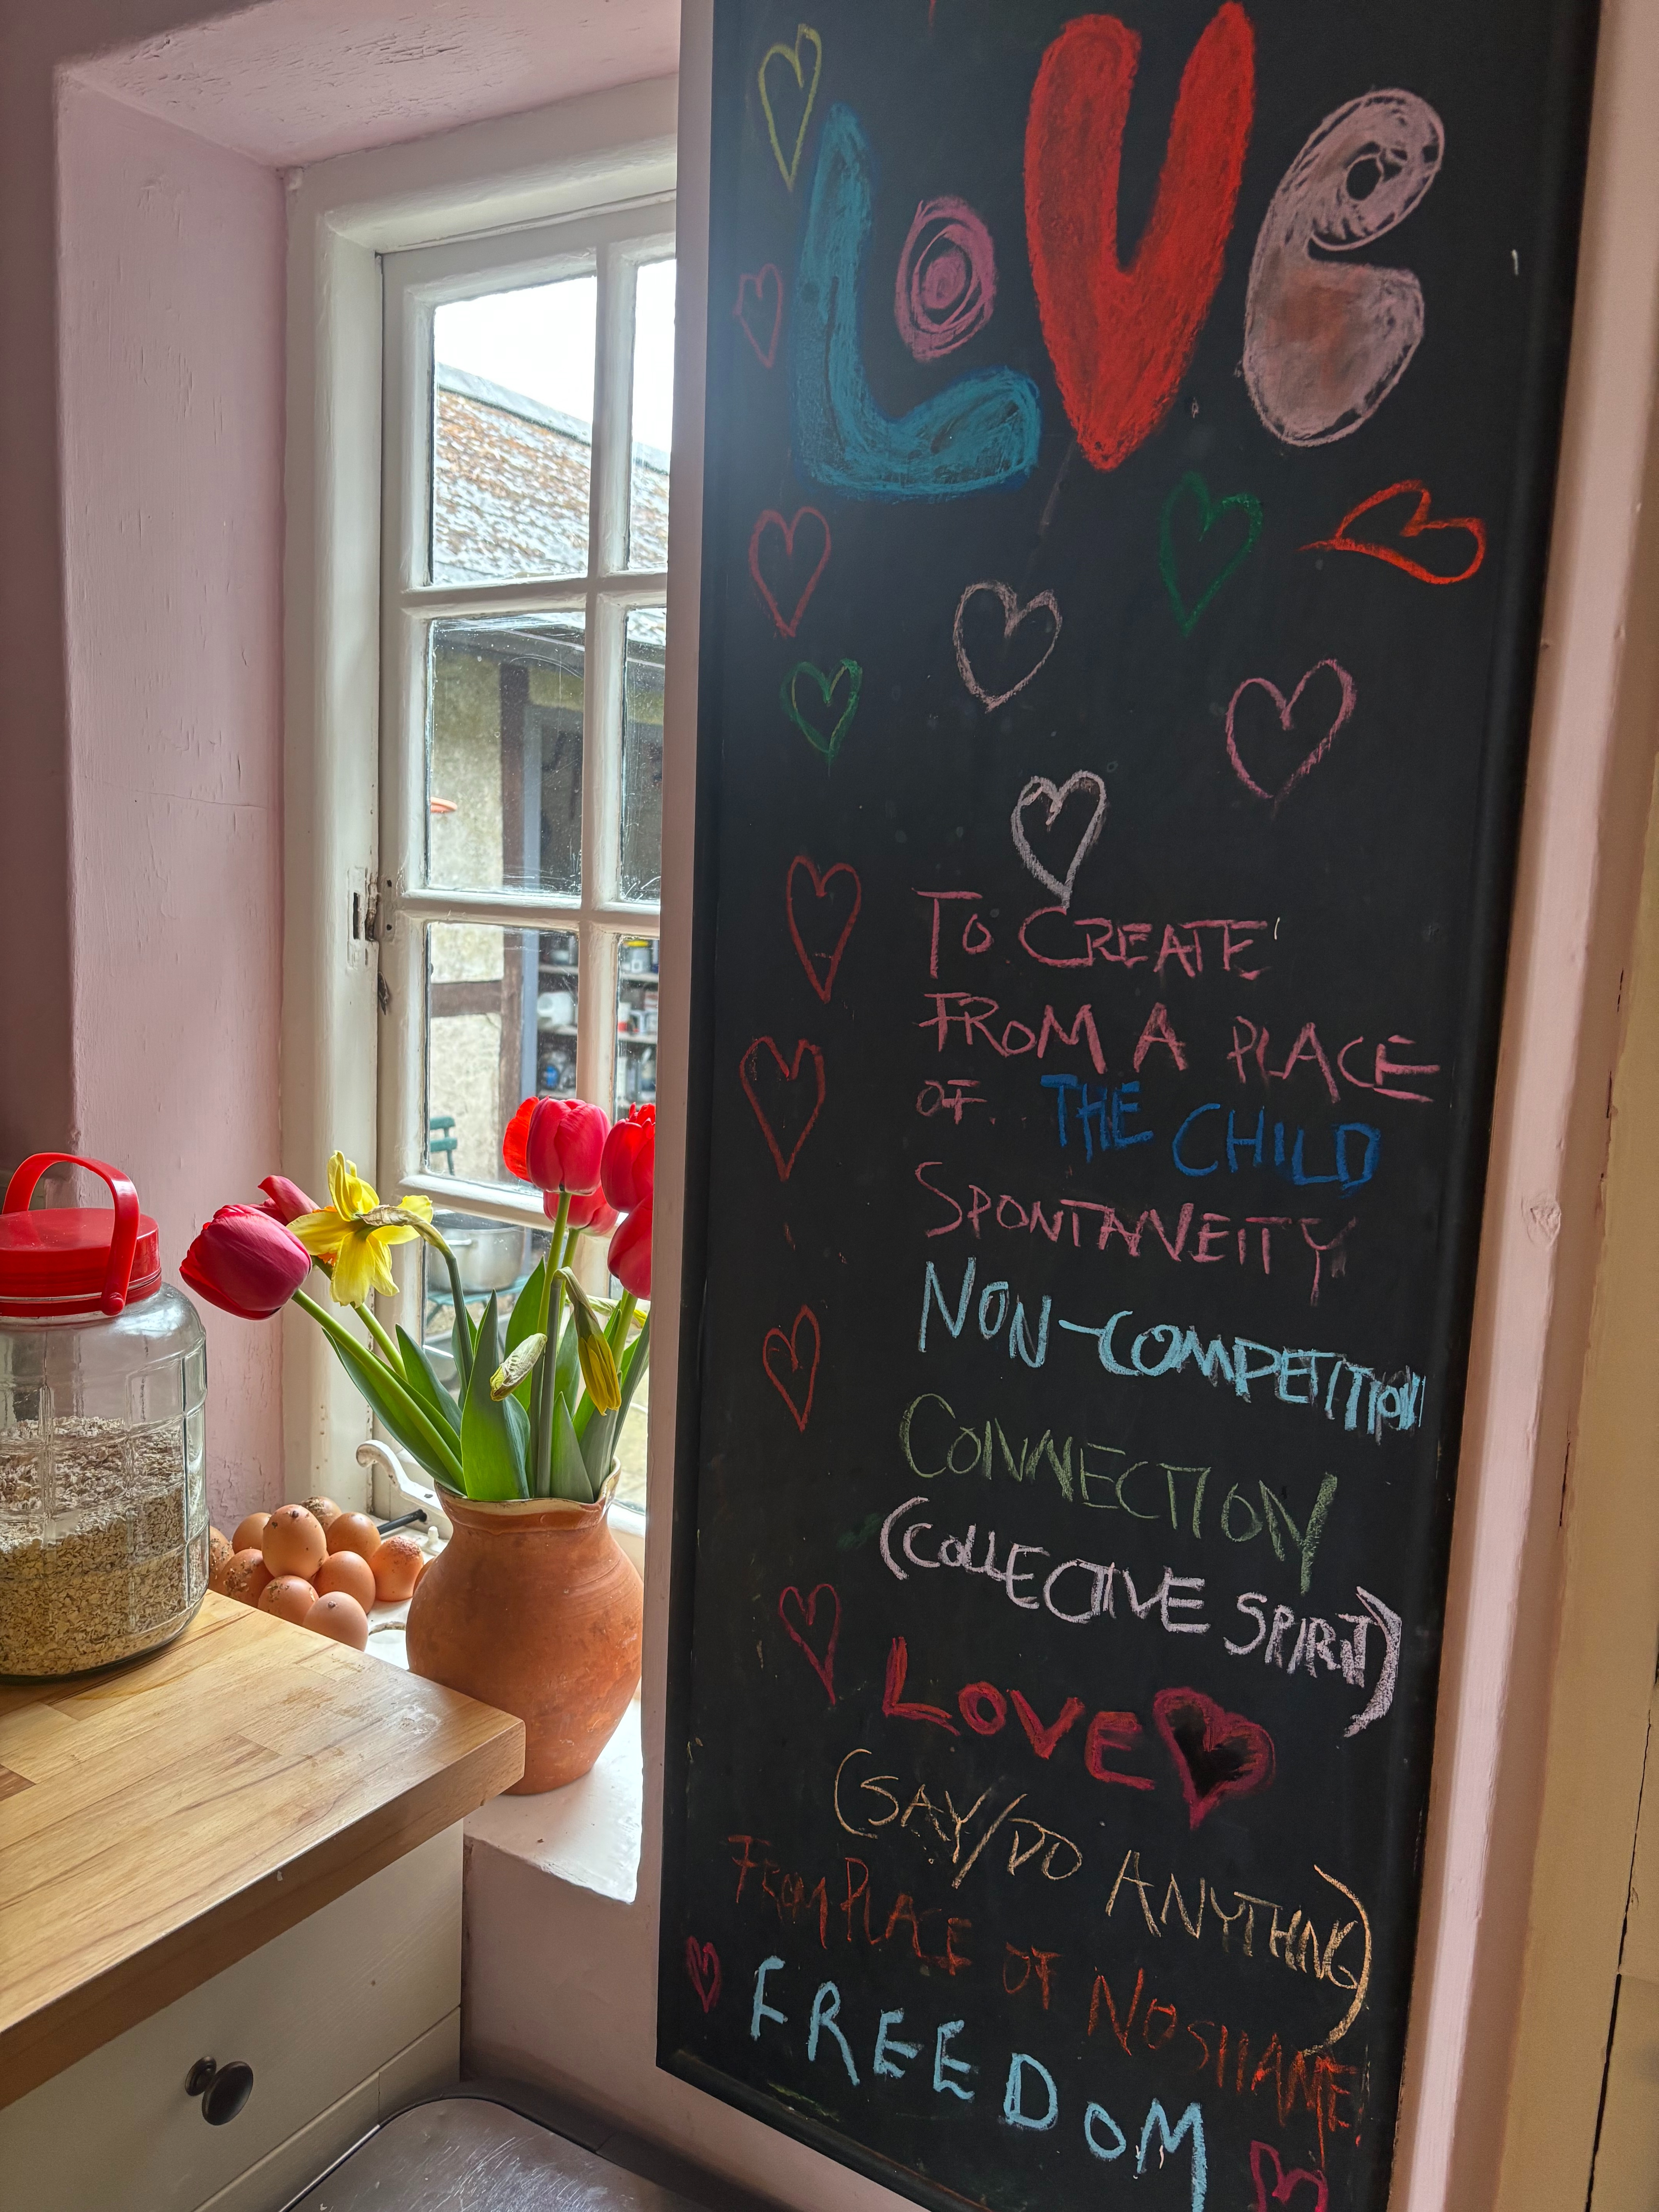 LOVE
TO CREATE
FROM A PLACE
OF THE CHILD
SPONTANEITY
NON-COMPETITION
CONNECTION
(COLLECTIVE SPIRIT)
LOVE
(SAY/DO ANYTHING)
FROM PLACE OF NO SHAME
FREEDOM